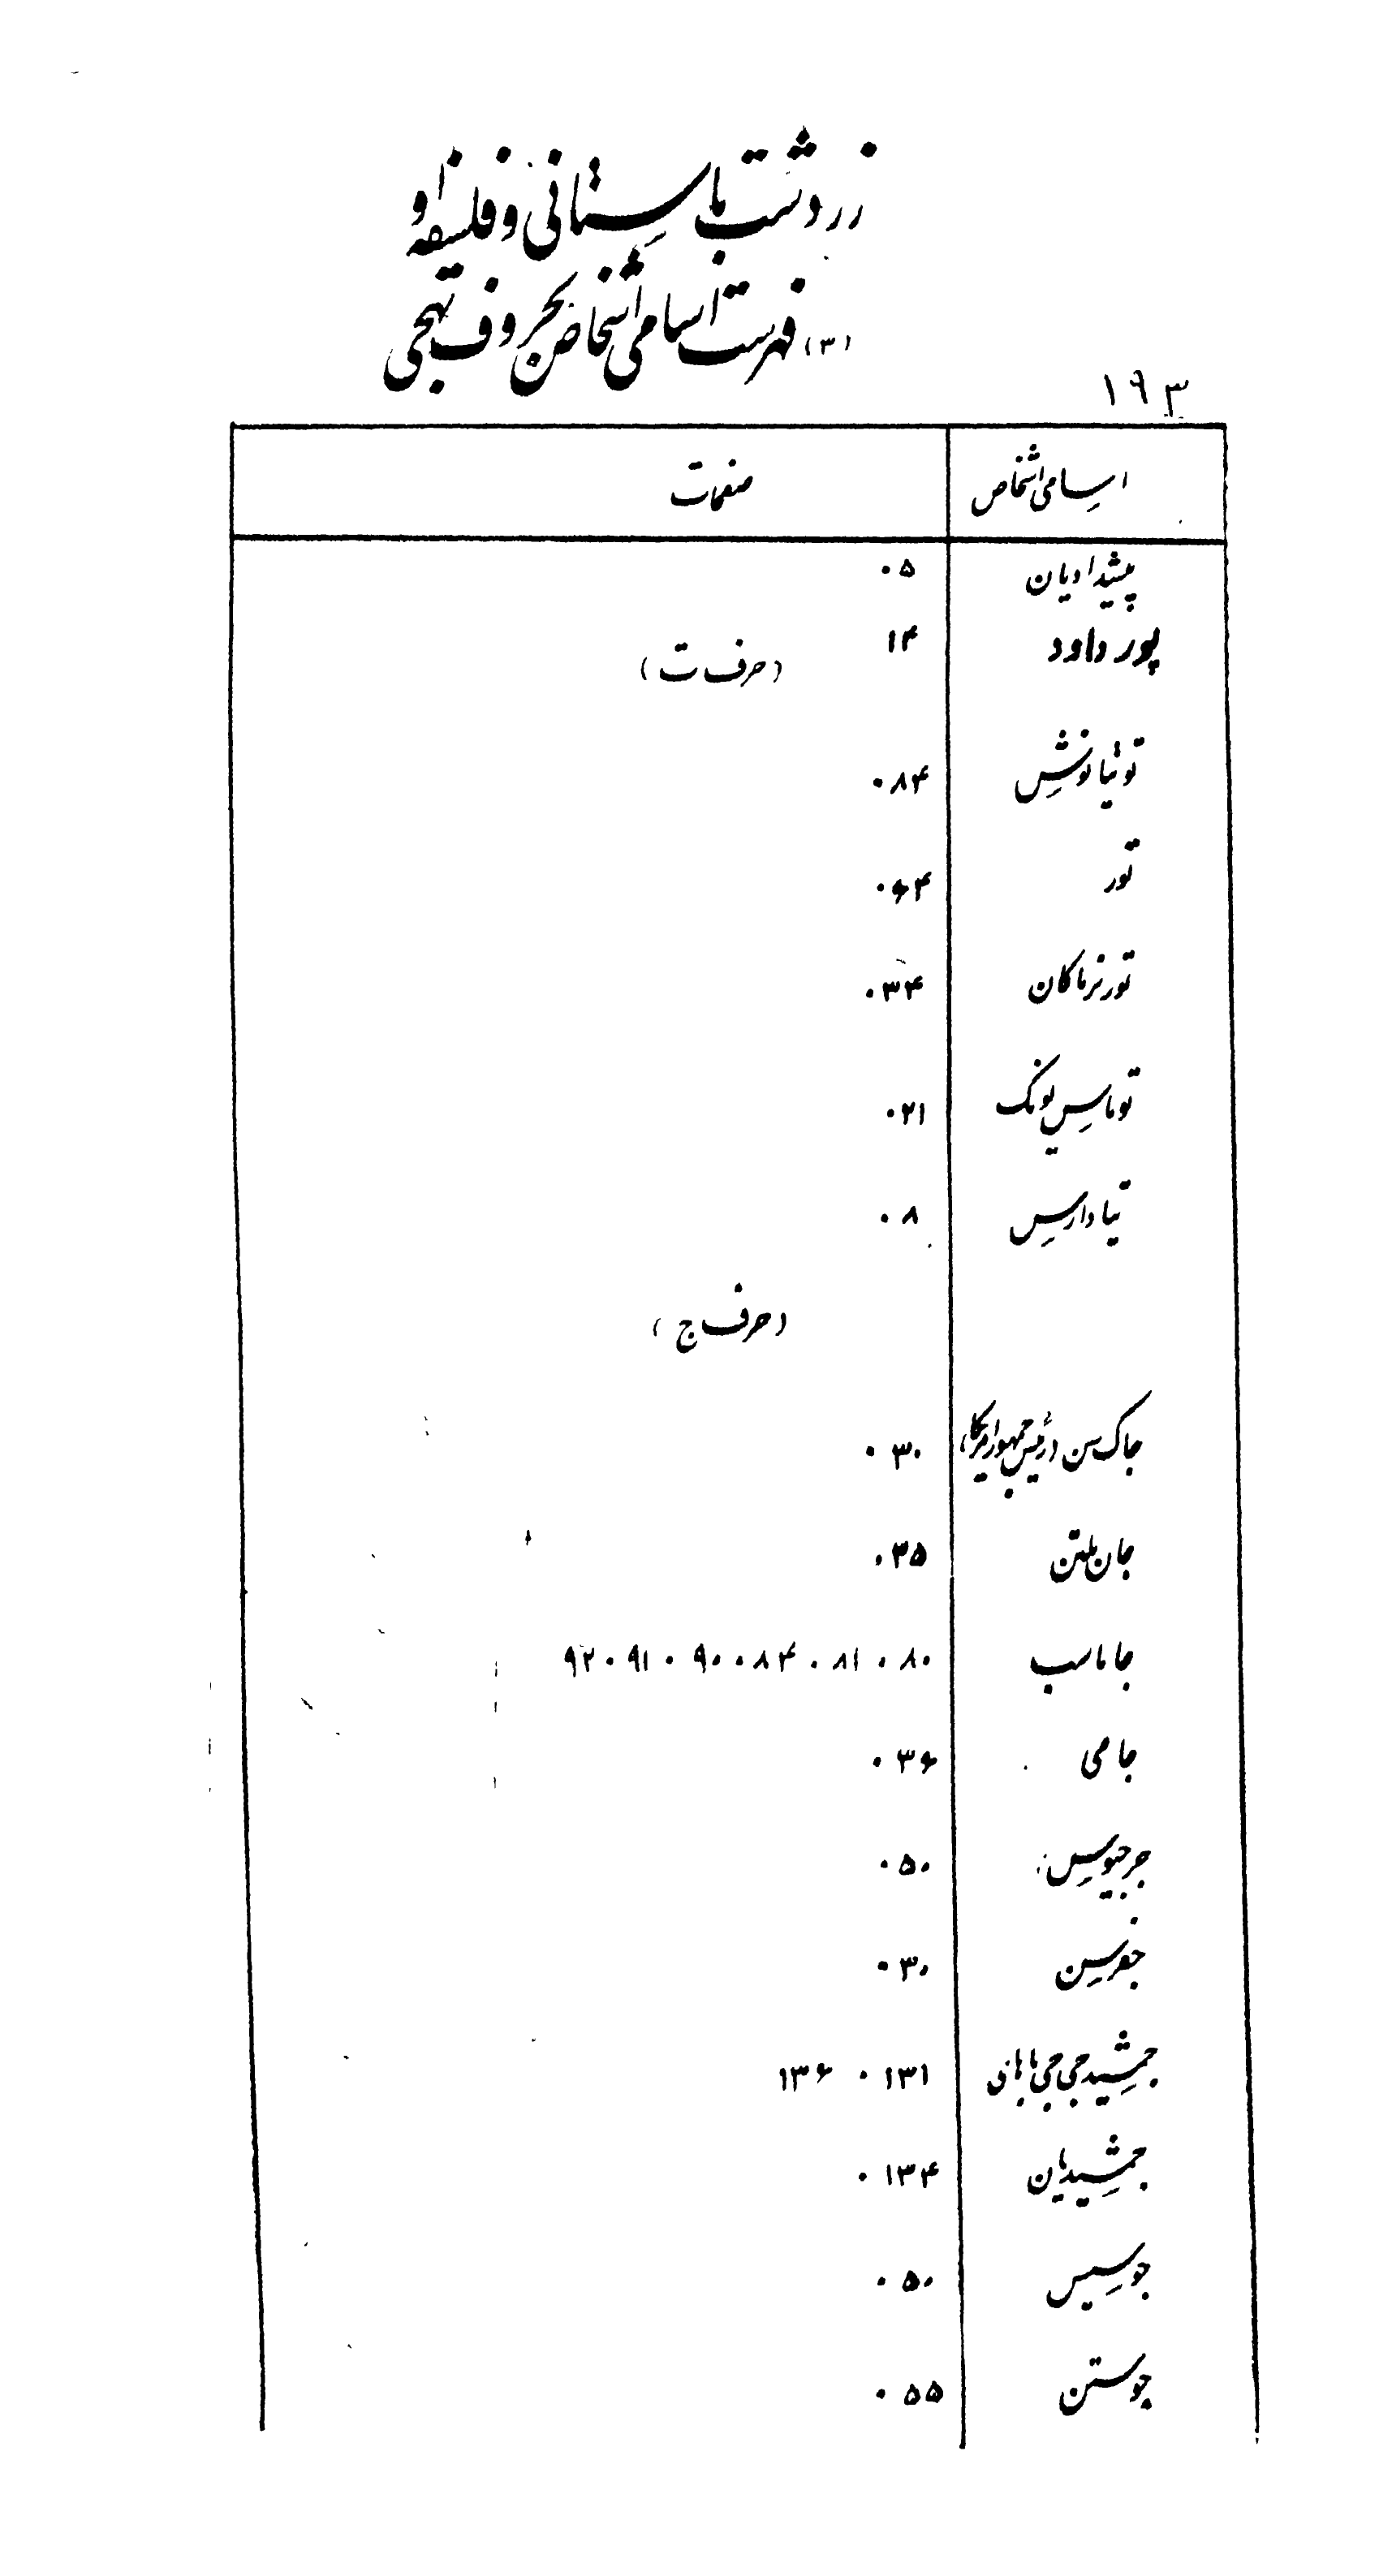 زردشت باستانی و فلسفه او
(۳) فهرست اسامی اشخاص بحروف تهجی
۱۹۳
اسامی اشخاص صفحات
پیشدادیان ۵۰
پور داود ۱۴
(حرف ت)
توتیانوش ۸۴۰
تور ۶۴۰
تور نرماکان ۳۴۰
توماس یونک ۲۱۰
تیادارس ۸۰
(حرف ج)
جاک سن (رئیس جمهور امریکا) ۳۰۰
جان ملتن ۳۵۰
جاماسب ۸۰۰ ۸۱۰ ۸۴۰ ۹۰۰ ۹۱۰ ۹۲
جامی ۳۶۰
جرجیوس ۵۰۰
جفرسن ۳۰۰
جمشید جی جی باهای ۱۳۱۰ ۱۳۶
جمشیدیان ۱۳۴۰
جوسیس ۵۰۰
جوستن ۵۵۰